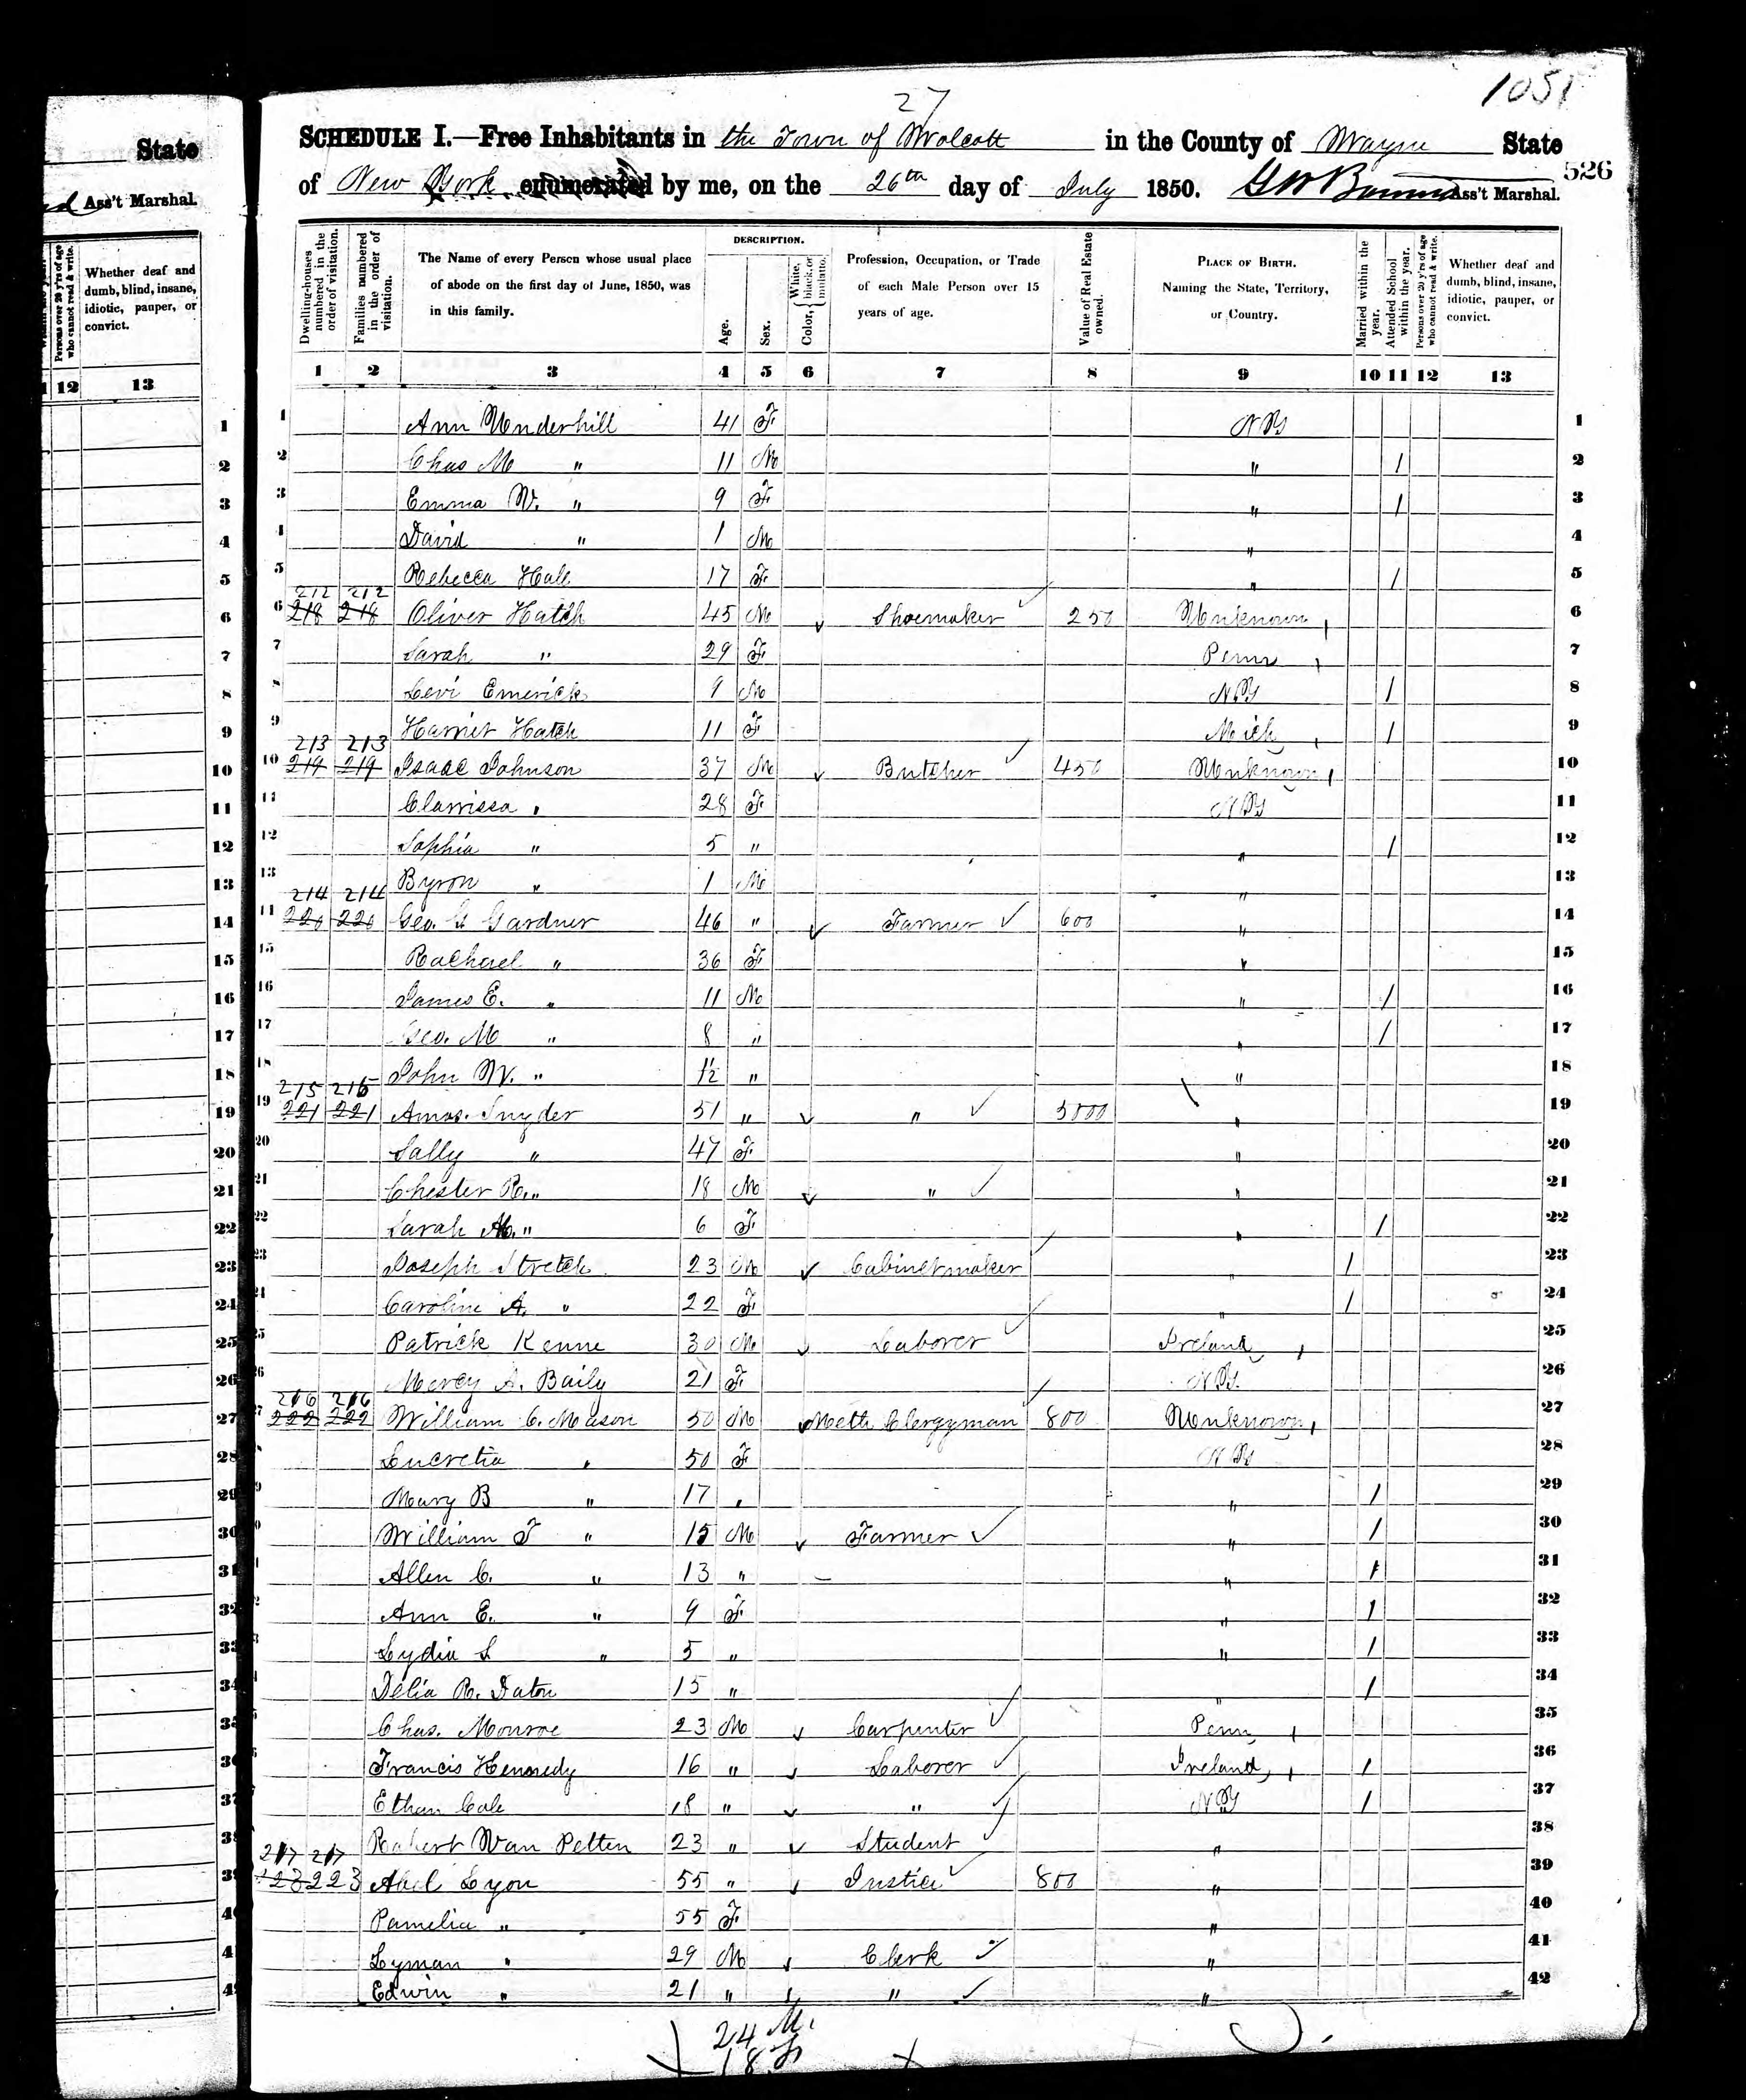 1051
27
SCHEDULE I.—Free Inhabitants in the Town of Wolcott in the County of Wayne State
of New York enumerated by me, on the 26th day of July 1850. Ass't Marshal.
526
State
Ass't Marshal.
Persons over 20 y'rs of age who cannot read & write.
Whether deaf and dumb, blind, insane, idiotic, pauper, or convict.
12 13
Dwelling-houses numbered in the order of visitation.
Families numbered in the order of visitation.
The Name of every Person whose usual place of abode on the first day of June, 1850, was in this family.
DESCRIPTION.
Age.
Sex.
Color, White, black, or mulatto.
Profession, Occupation, or Trade of each Male Person over 15 years of age.
Value of Real Estate owned.
PLACE OF BIRTH. Naming the State, Territory, or Country.
Married within the year.
Attended School within the year.
Persons over 20 y'rs of age who cannot read & write.
Whether deaf and dumb, blind, insane, idiotic, pauper, or convict.
1 2 3 4 5 6 7 8 9 10 11 12 13
1 Ann Underhill 41 F NY 1
2 Chas M " 11 M " 1 2
3 Emma W. " 9 F " 1 3
4 David " 1 M " 4
5 Rebecca Hall 17 F " 1 5
212 212
6 218 218 Oliver Hatch 45 M Shoemaker 250 Unknown 6
7 Sarah " 29 F Penn 7
8 Levi Emerick 9 M NY 1 8
9 Harriet Hatch 11 F Mich 1 9
213 213
10 219 219 Isaac Johnson 37 M Butcher 450 Unknown 10
11 Clarrissa " 28 F NY 11
12 Sophia " 5 " " 1 12
13 Byron " 1 M " 13
214 214
14 220 220 Geo. G Gardner 46 " Farmer 600 " 14
15 Rachael " 36 F " 15
16 James E. " 11 M " 1 16
17 Geo. M " 8 " " 1 17
18 John W. " 1/2 " " 18
215 215
19 221 221 Amos. Snyder 51 " " 5000 " 19
20 Sally " 47 F " 20
21 Chester R. " 18 M " " 21
22 Sarah M. " 6 F " 1 22
23 Joseph Stretch 23 M Cabinetmaker " 1 23
24 Caroline A. " 22 F " 1 24
25 Patrick Kenne 30 M Laborer Ireland 25
26 Mercy A. Baily 21 F NY. 26
216 216
27 222 222 William C. Mason 50 M Meth Clergyman 800 Unknown 27
28 Lucretia " 50 F NY 28
29 Mary B " 17 " " 1 29
30 William F " 15 M Farmer " 1 30
31 Allen C. " 13 " " 1 31
32 Ann E. " 9 F " 1 32
33 Lydia S " 5 " " 1 33
34 Delia R. Daton 15 " " 1 34
35 Chas. Monroe 23 M Carpenter Penn 35
36 Francis Hennedy 16 " Laborer Ireland, 1 36
37 Ethan Cole 18 " " NY 1 37
38 Robert Van Petten 23 " Student " 38
217 217
39 223 223 Abel Lyon 55 " Justice 800 " 39
40 Pamelia " 55 F " 40
41 Lyman " 29 M Clerk " 41
42 Edwin " 21 " " " 42
24 M.
18 F